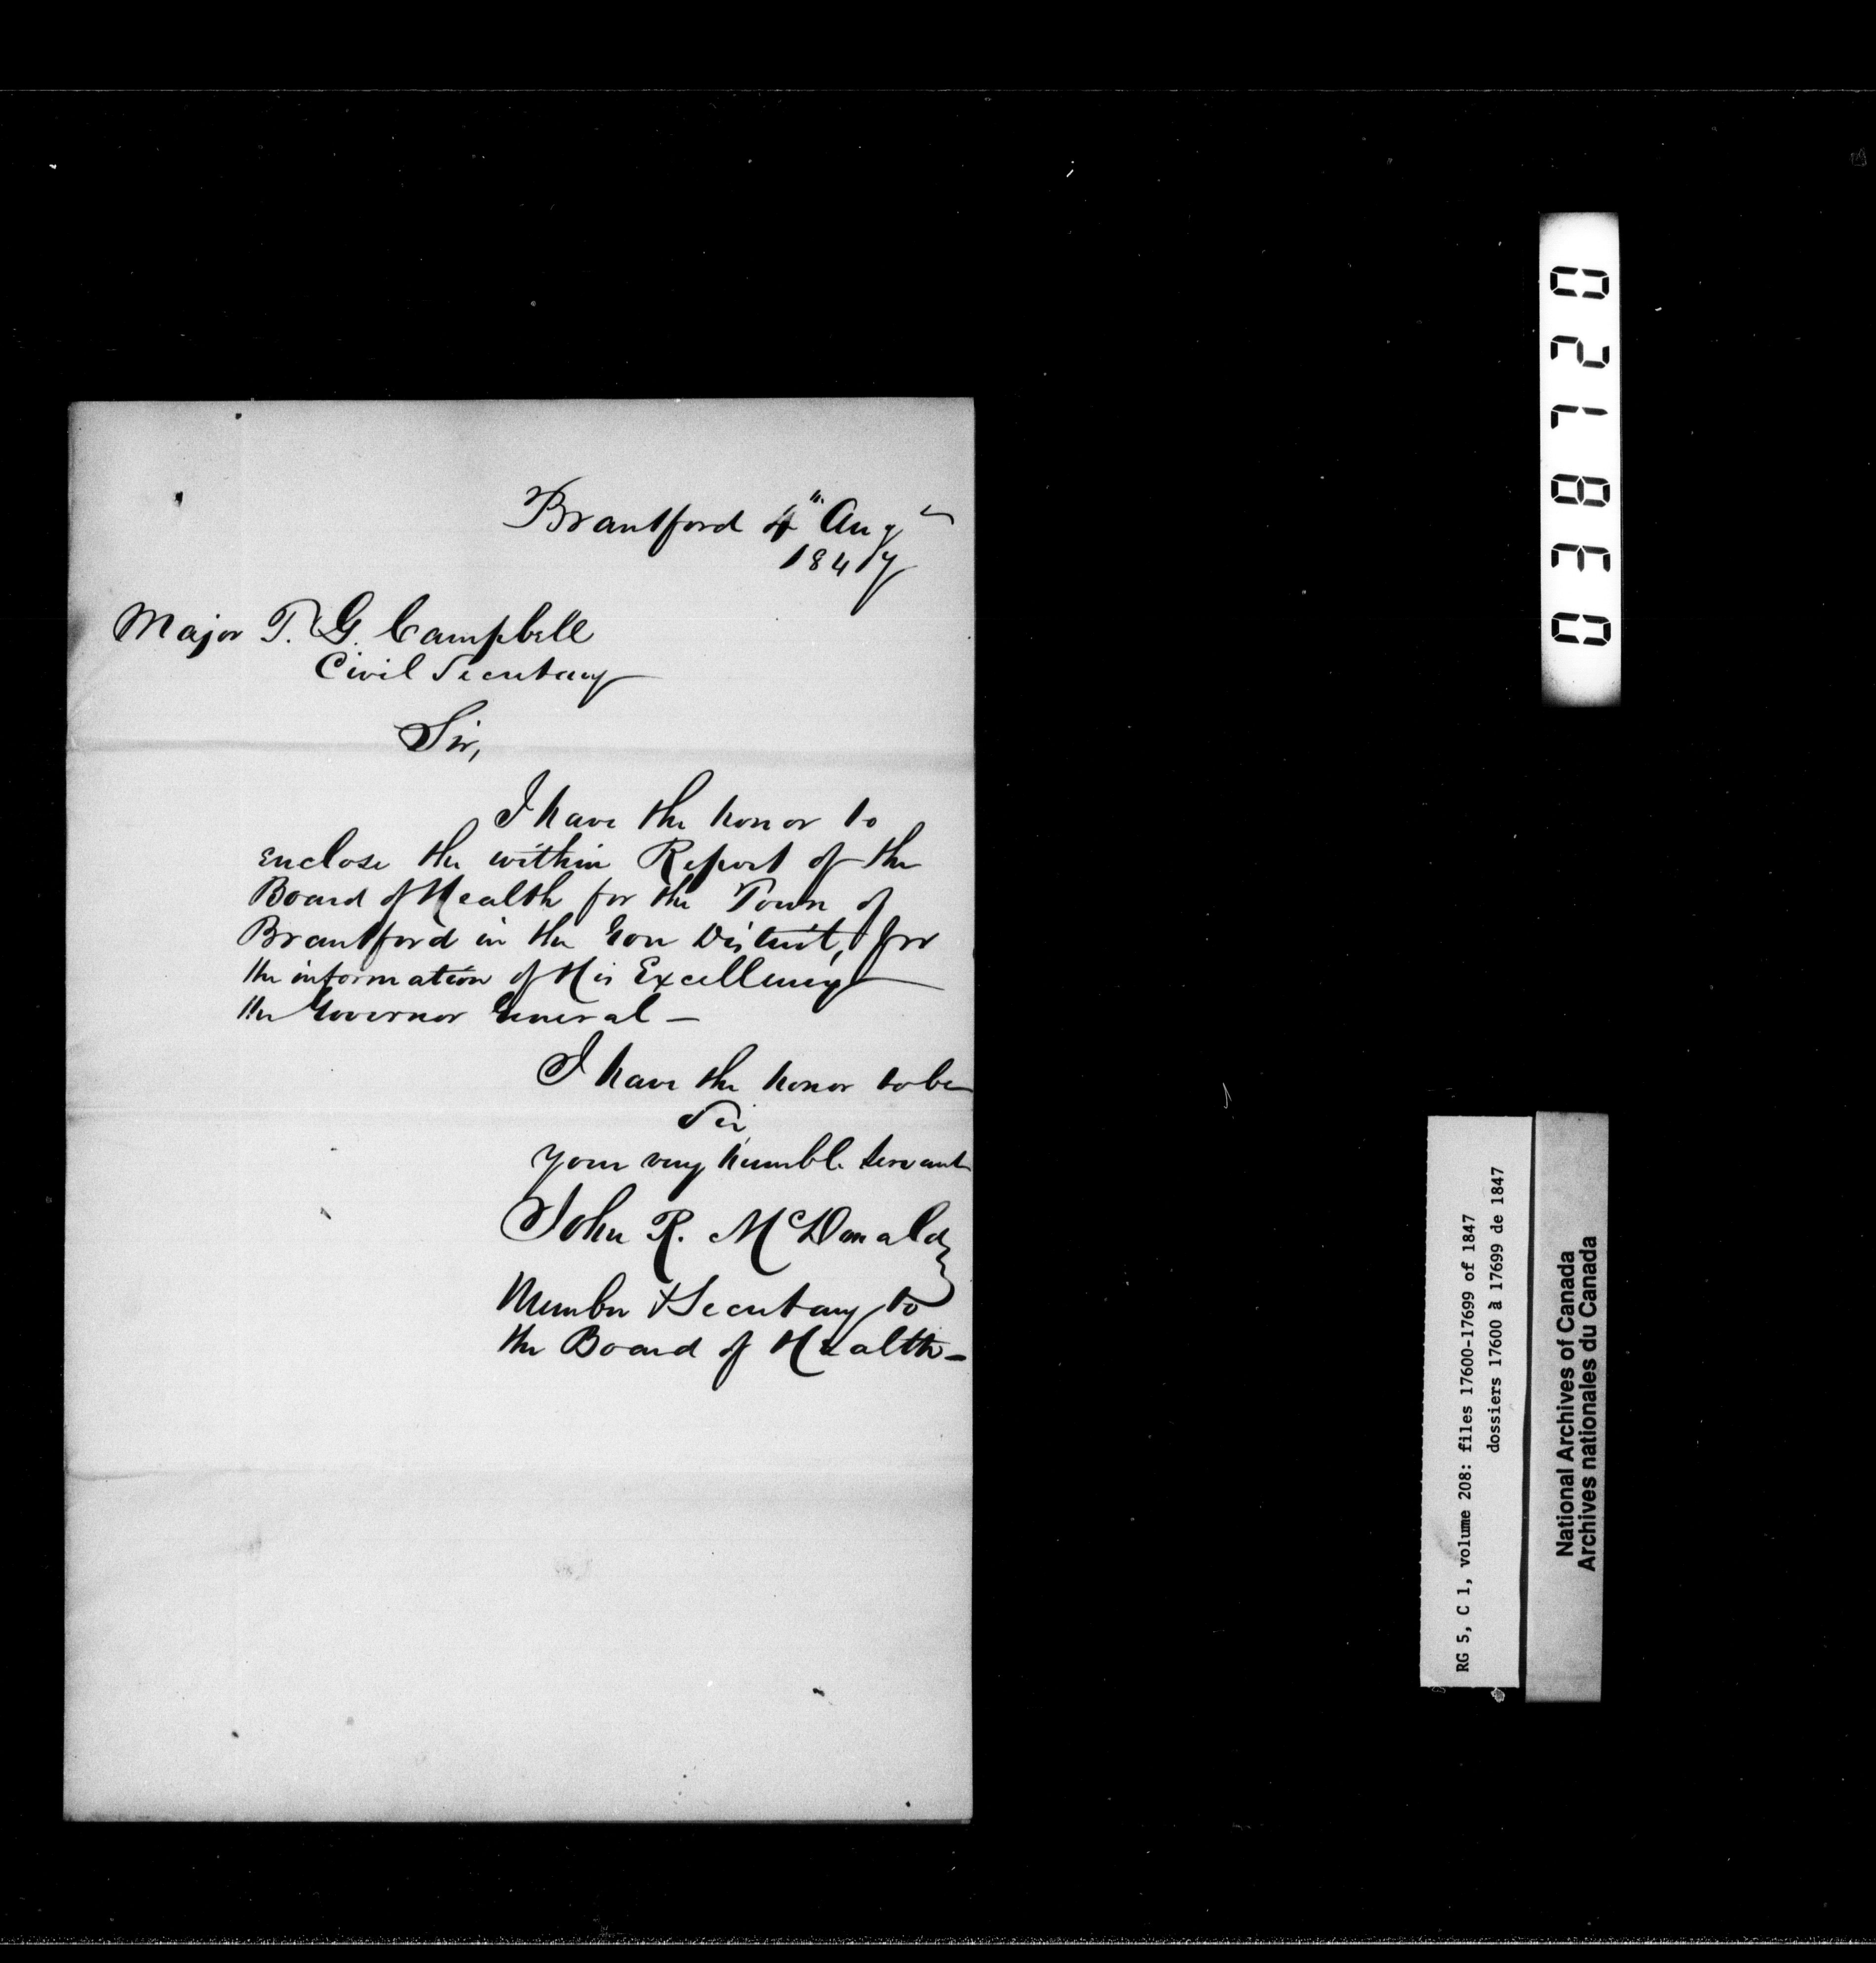 Brantford 4" Augt
1847
Major T. G. Campbell
Civil Secretary
Sir,
I have the honor to
enclose the within Report of the
Board of Health for the Town of
Brantford in the Gore District, for
the information of His Excellency
the Governor General —
I have the honor to be
Sir,
your very humble servant
John R. McDonald
Member & Secretary to
the Board of Health —
021830
RG 5, C 1, volume 208: files 17600-17699 of 1847
dossiers 17600 à 17699 de 1847
National Archives of Canada
Archives nationales du Canada